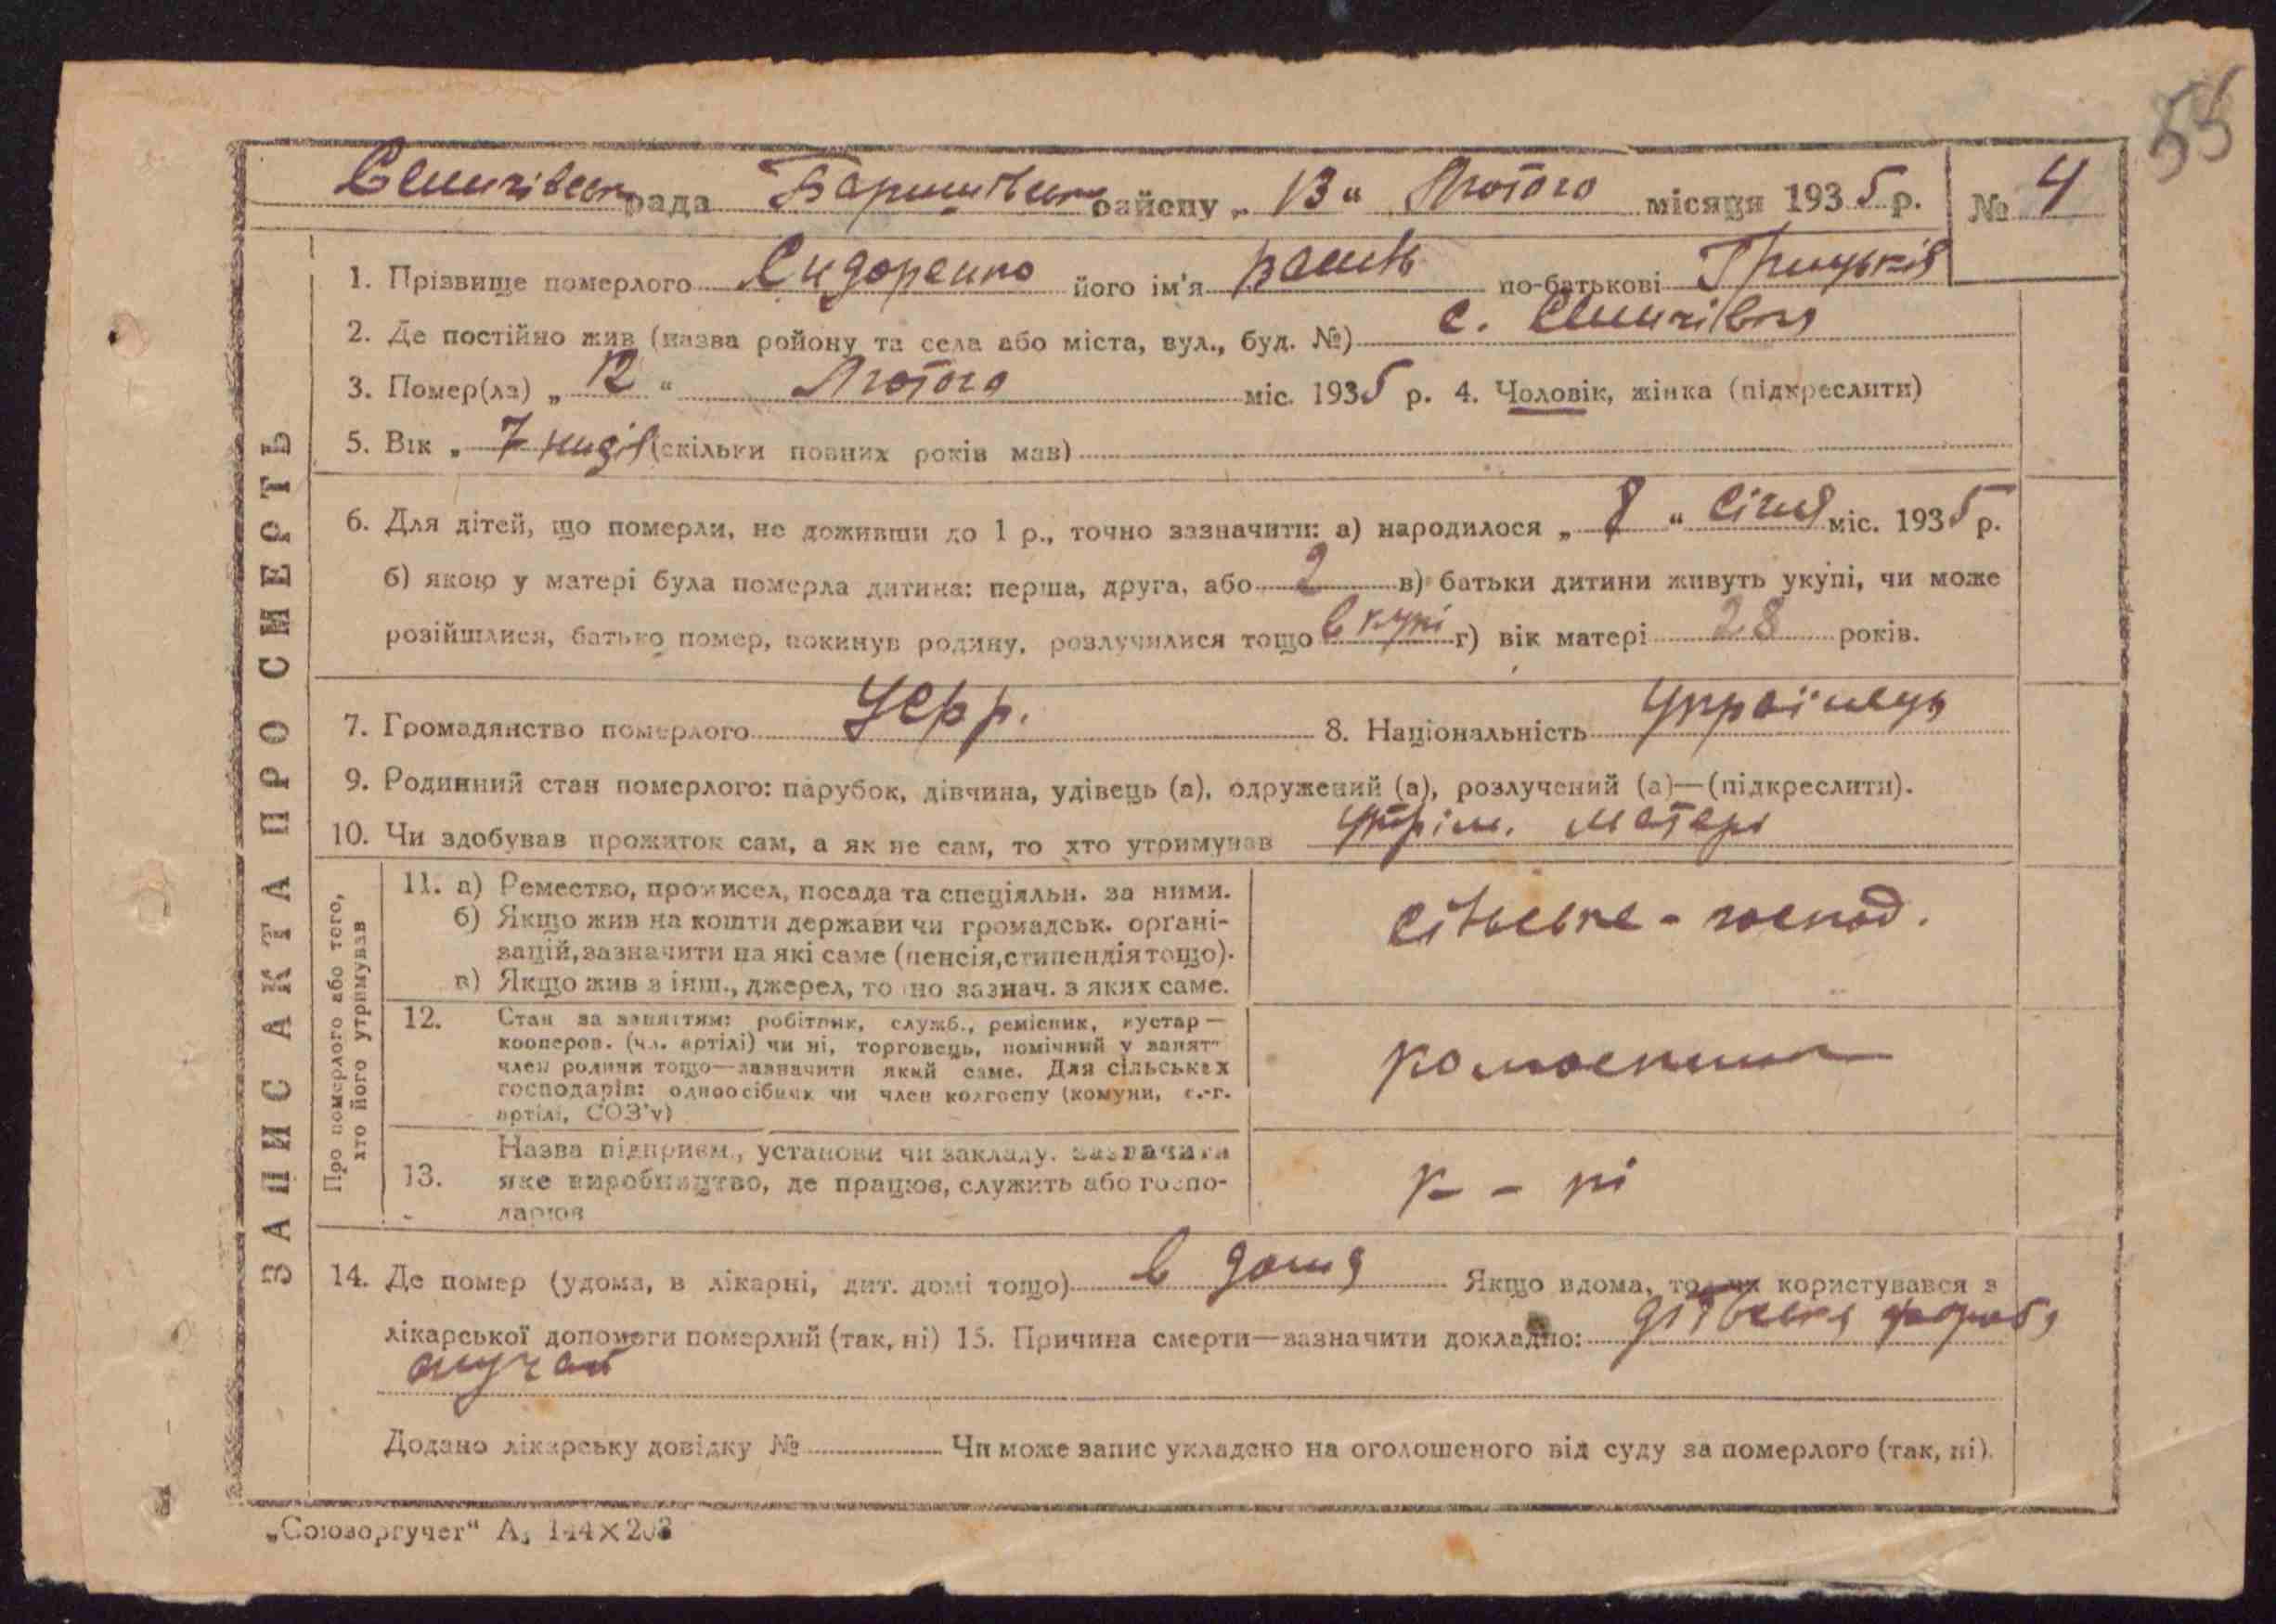 55
Селичівськ рада Баришівськ району „13“ Лютого місяця 1935 р. № 4
ЗАПИС АКТА ПРО СМЕРТЬ
1. Прізвище померлого Сидоренко його ім'я по-батькові Грицьків
2. Де постійно жив (назва району та села або міста, вул., буд. №) с. Селичівка
3. Помер(ла) „12“ Лютого міс. 1935 р. 4. Чоловік, жінка (підкреслити)
5. Вік „ 7 (скільки повних років мав)
6. Для дітей, що померли, не доживши до 1 р., точно зазначити: а) народилося „8“ Січня міс. 1935 р.
б) якою у матері була померла дитина: перша, друга, або 2 в) батьки дитини живуть укупі, чи може
розійшлися, батько помер, покинув родину, розлучилися тощо вкупі г) вік матері 28 років.
7. Громадянство померлого УСРР. 8. Національність Українець
9. Родинний стан померлого: парубок, дівчина, удівець (а), одружений (а), розлучений (а)—(підкреслити).
10. Чи здобував прожиток сам, а як не сам, то хто утримував утрім. матері
Про померлого або того,
хто його утримував
11. а) Ремество, промисел, посада та спеціяльн. за ними.
б) Якщо жив на кошти держави чи громадськ. органі-
зацій, зазначити на які саме (пенсія, стипендія тощо).
в) Якщо жив з інш., джерел, то но зазнач. з яких саме.
сільське-господ.
12. Стан за заняттям: робітник, служб., ремісник, кустар—
кооперов. (чл. артілі) чи ні, торговець, помічний у занят
член родини тощо—зазначити який саме. Для сільських
господарів: одноосібник чи член колгоспу (комуни, с.-г.
артілі, СОЗ'у)
13. Назва підприєм., установи чи закладу, зазначити
яке виробництво, де працює, служить або госпо-
дарює
14. Де помер (удома, в лікарні, дит. домі тощо) в дома Якщо вдома, то чи користувався з
лікарської допомоги померлий (так, ні) 15. Причина смерти—зазначити докладно:
Додано лікарську довідку № Чи може запис укладено на оголошеного від суду за померлого (так, ні).
„Союзоргучет“ А₅ 144×203